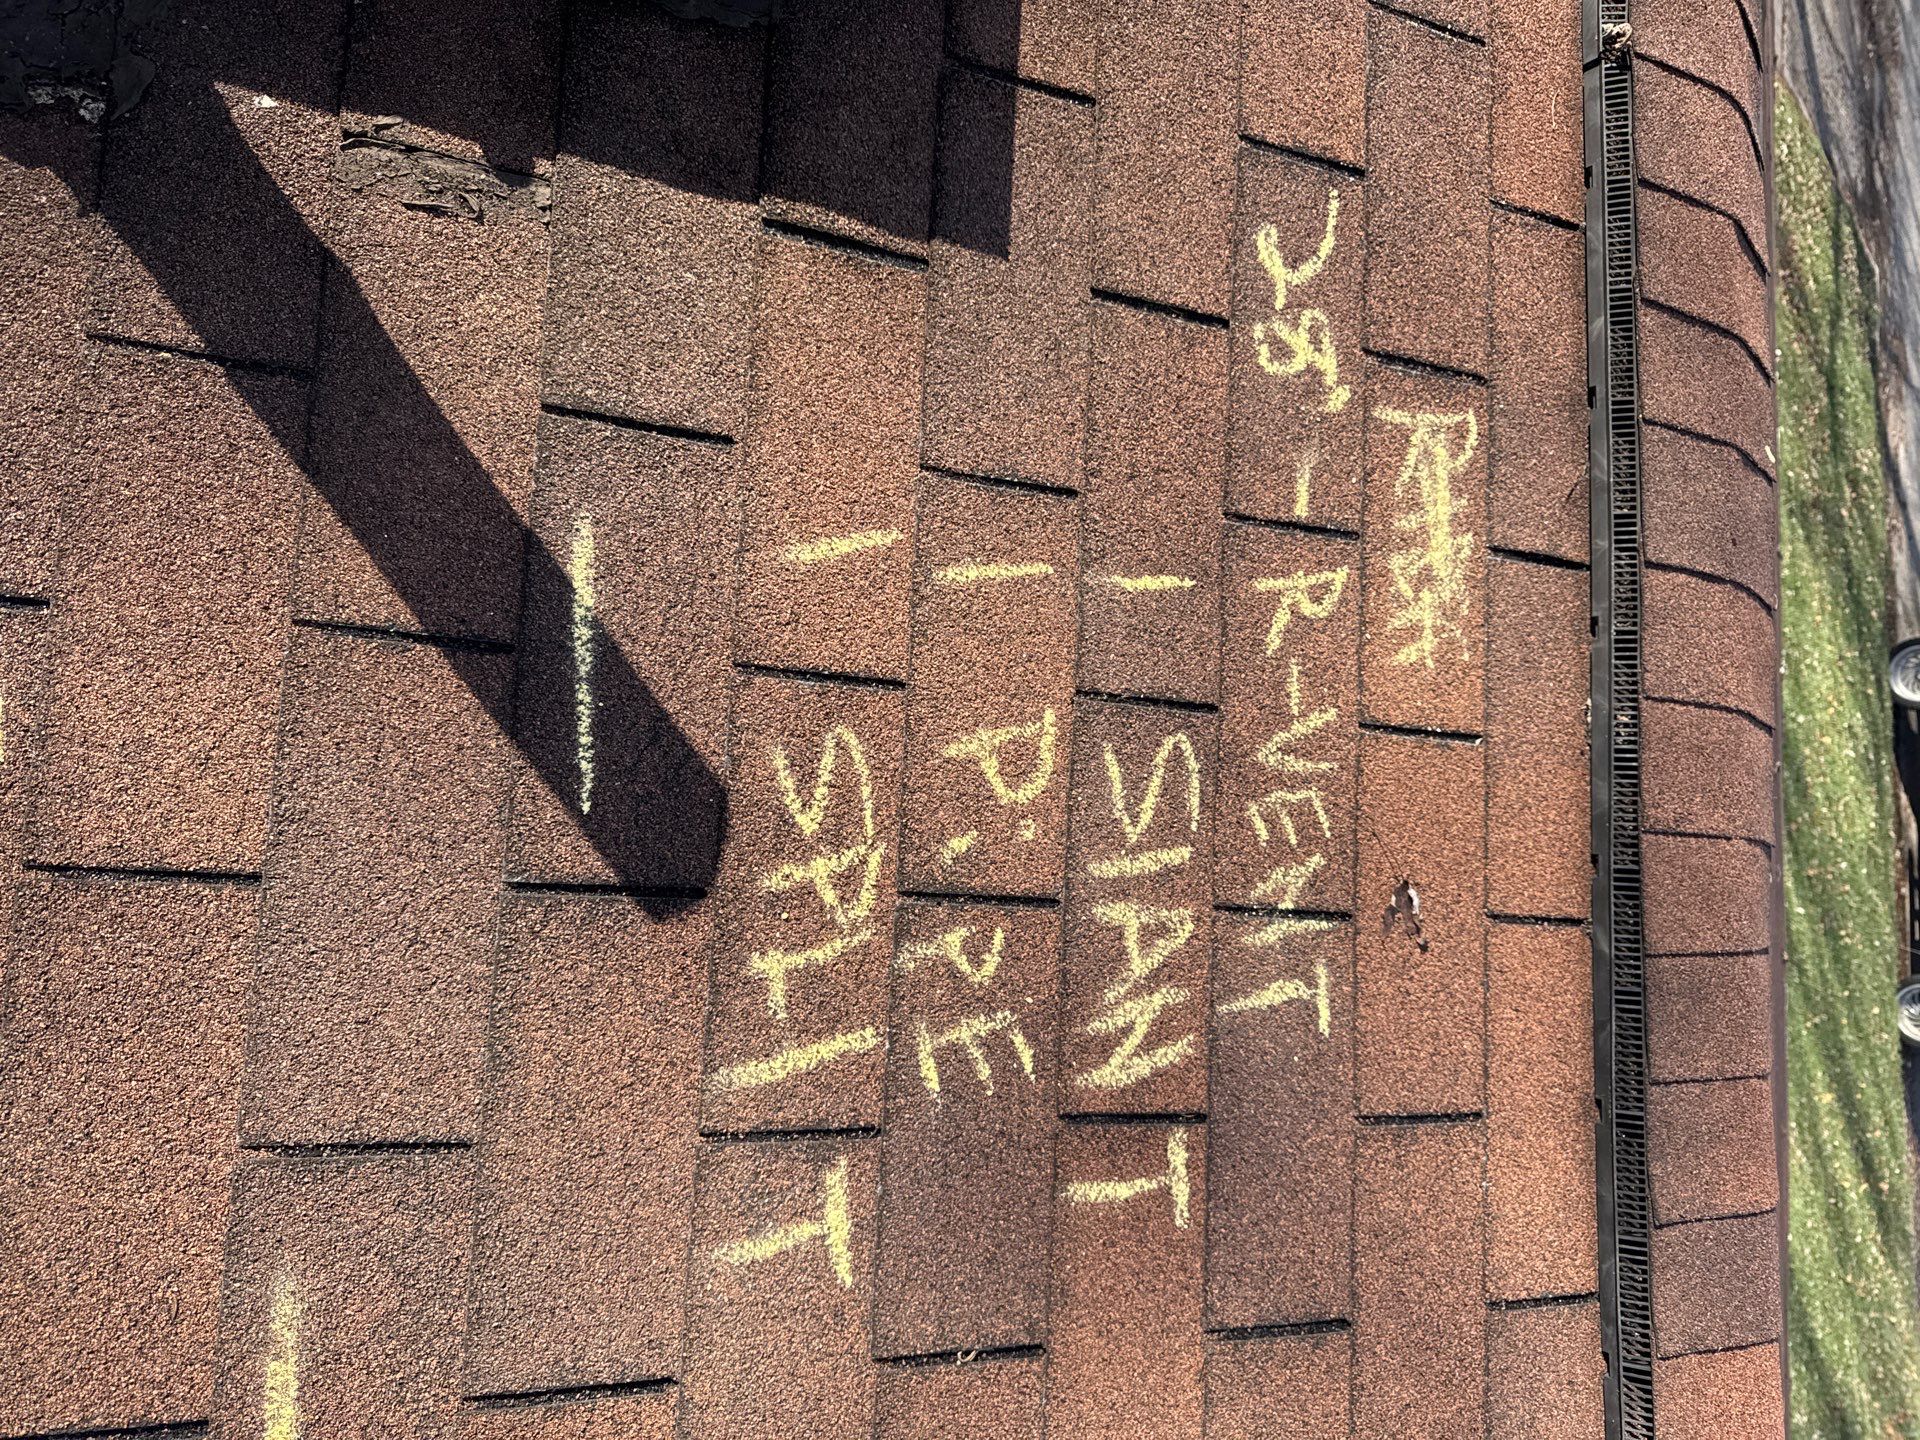 28' - R-VENT
1 SIANT
1 PiPE
1 SPLIT